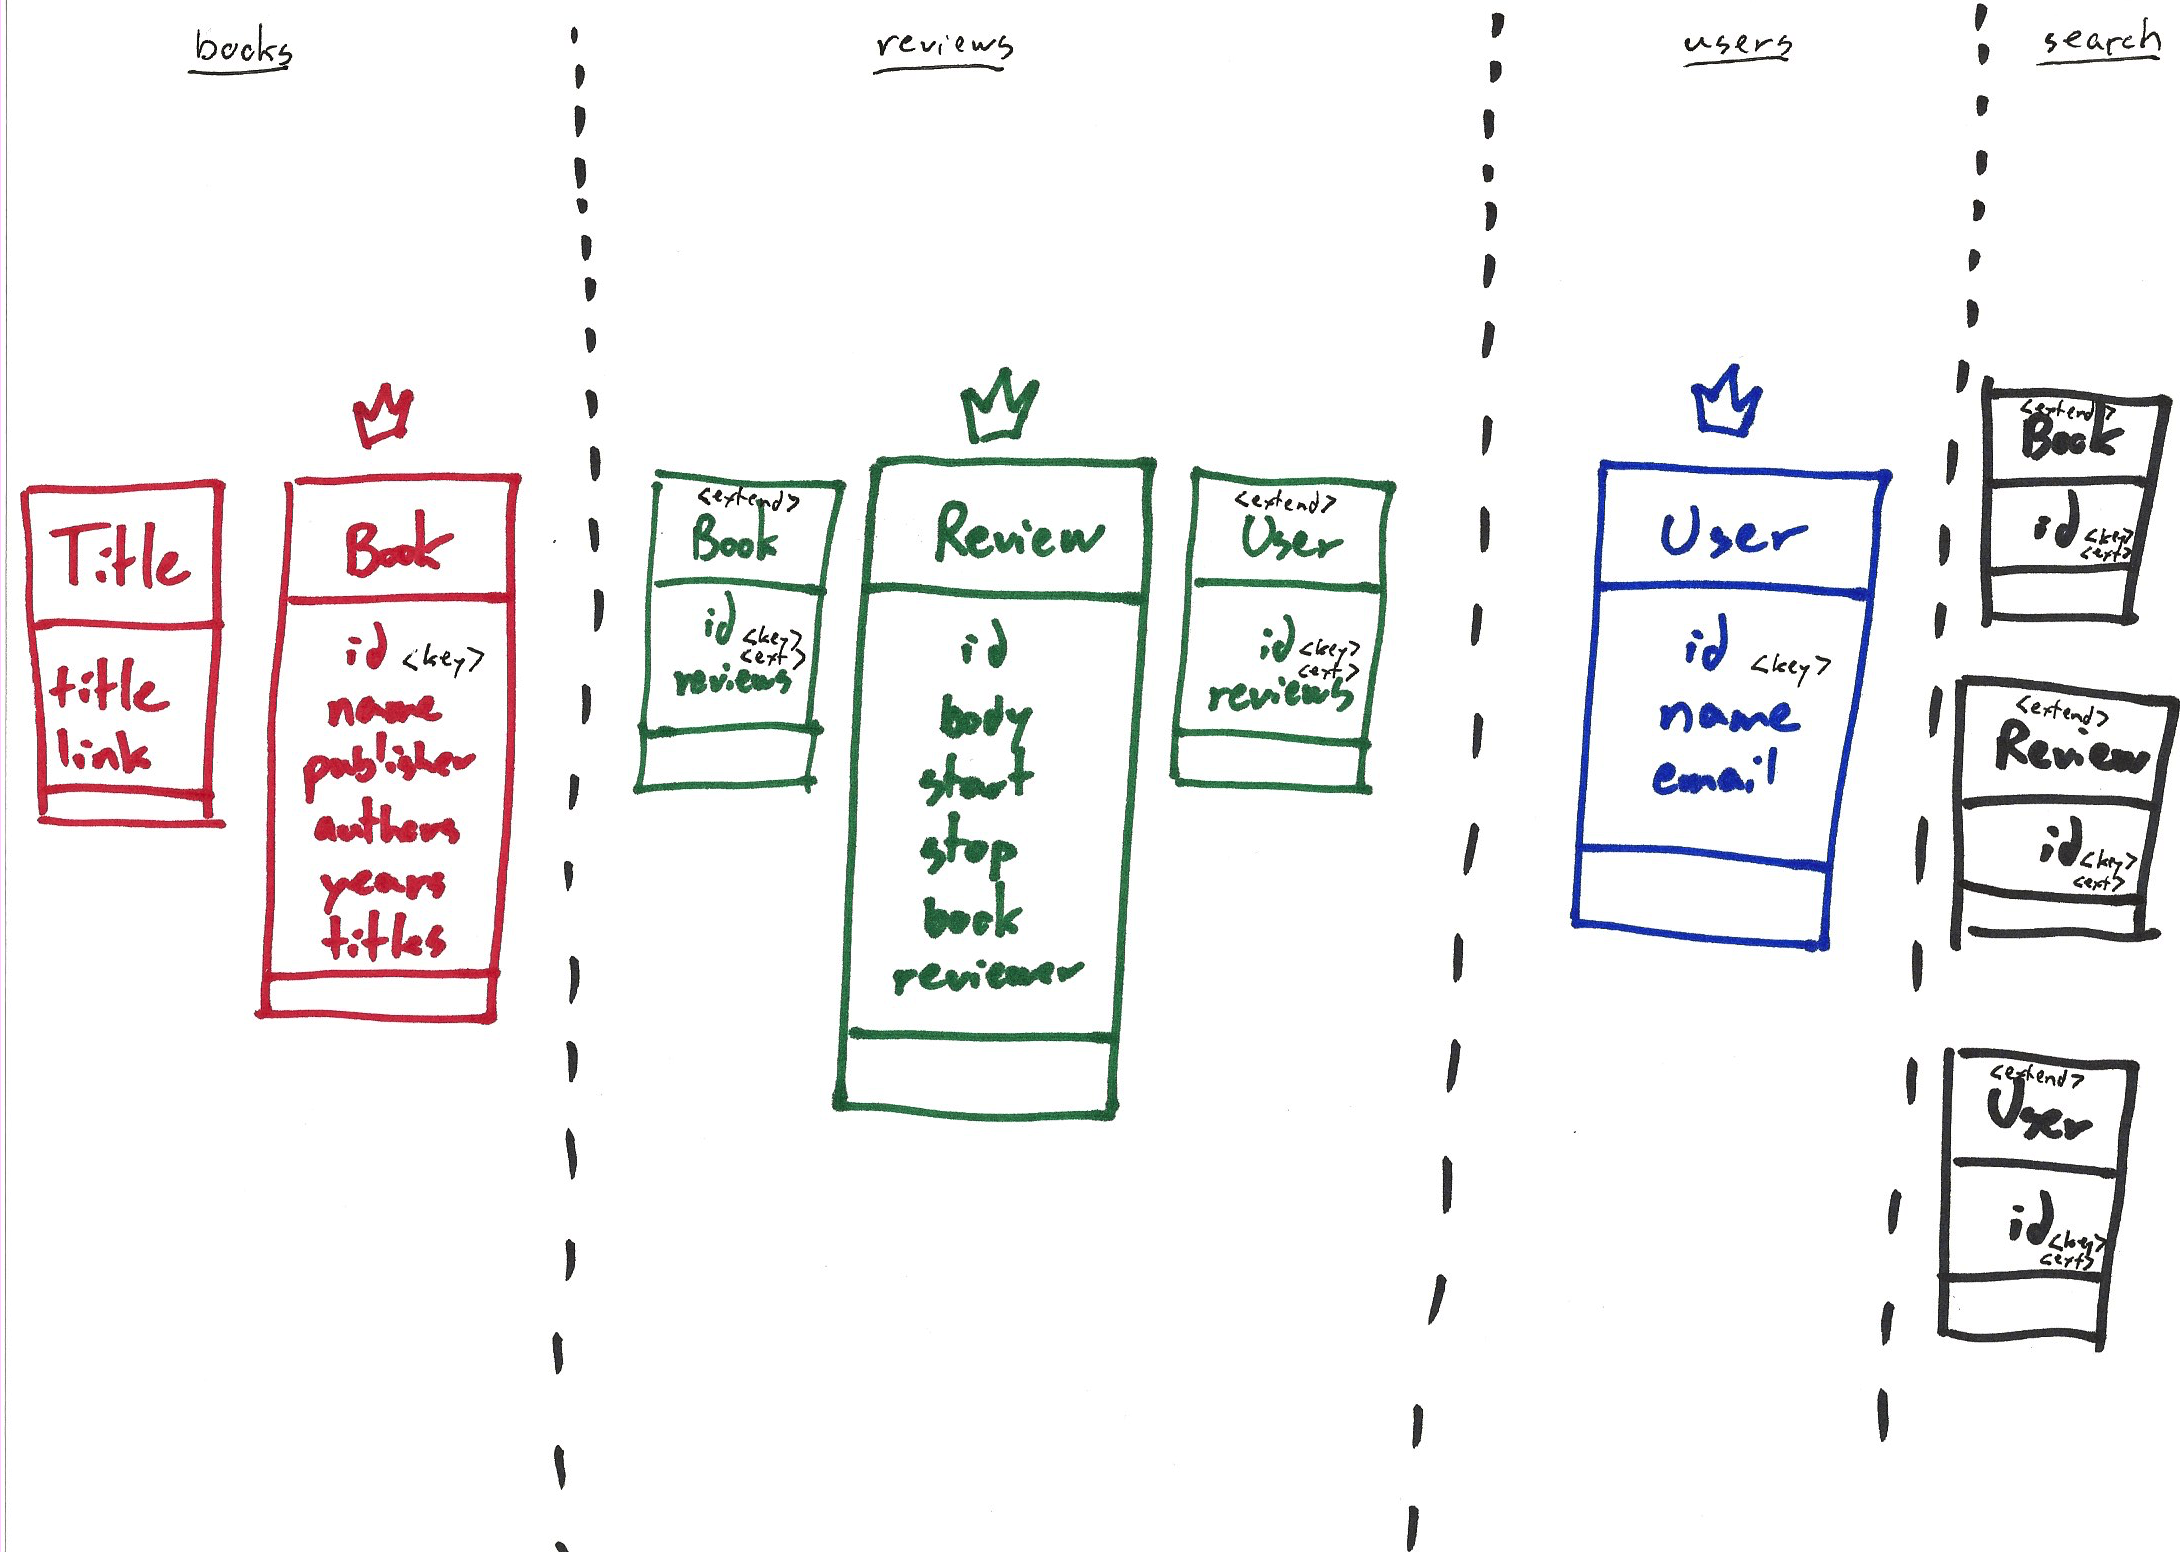 books
reviews
users
search
Title
title
link
Book
id <key>
name
publisher
authors
years
titles
<extend>
Book
id <key>
<ext>
reviews
Review
id
body
start
stop
book
reviewer
<extend>
User
id <key>
<ext>
reviews
User
id <key>
name
email
<extend>
Book
id <key>
<ext>
<extend>
Review
id <key>
<ext>
<extend>
User
id <key>
<ext>